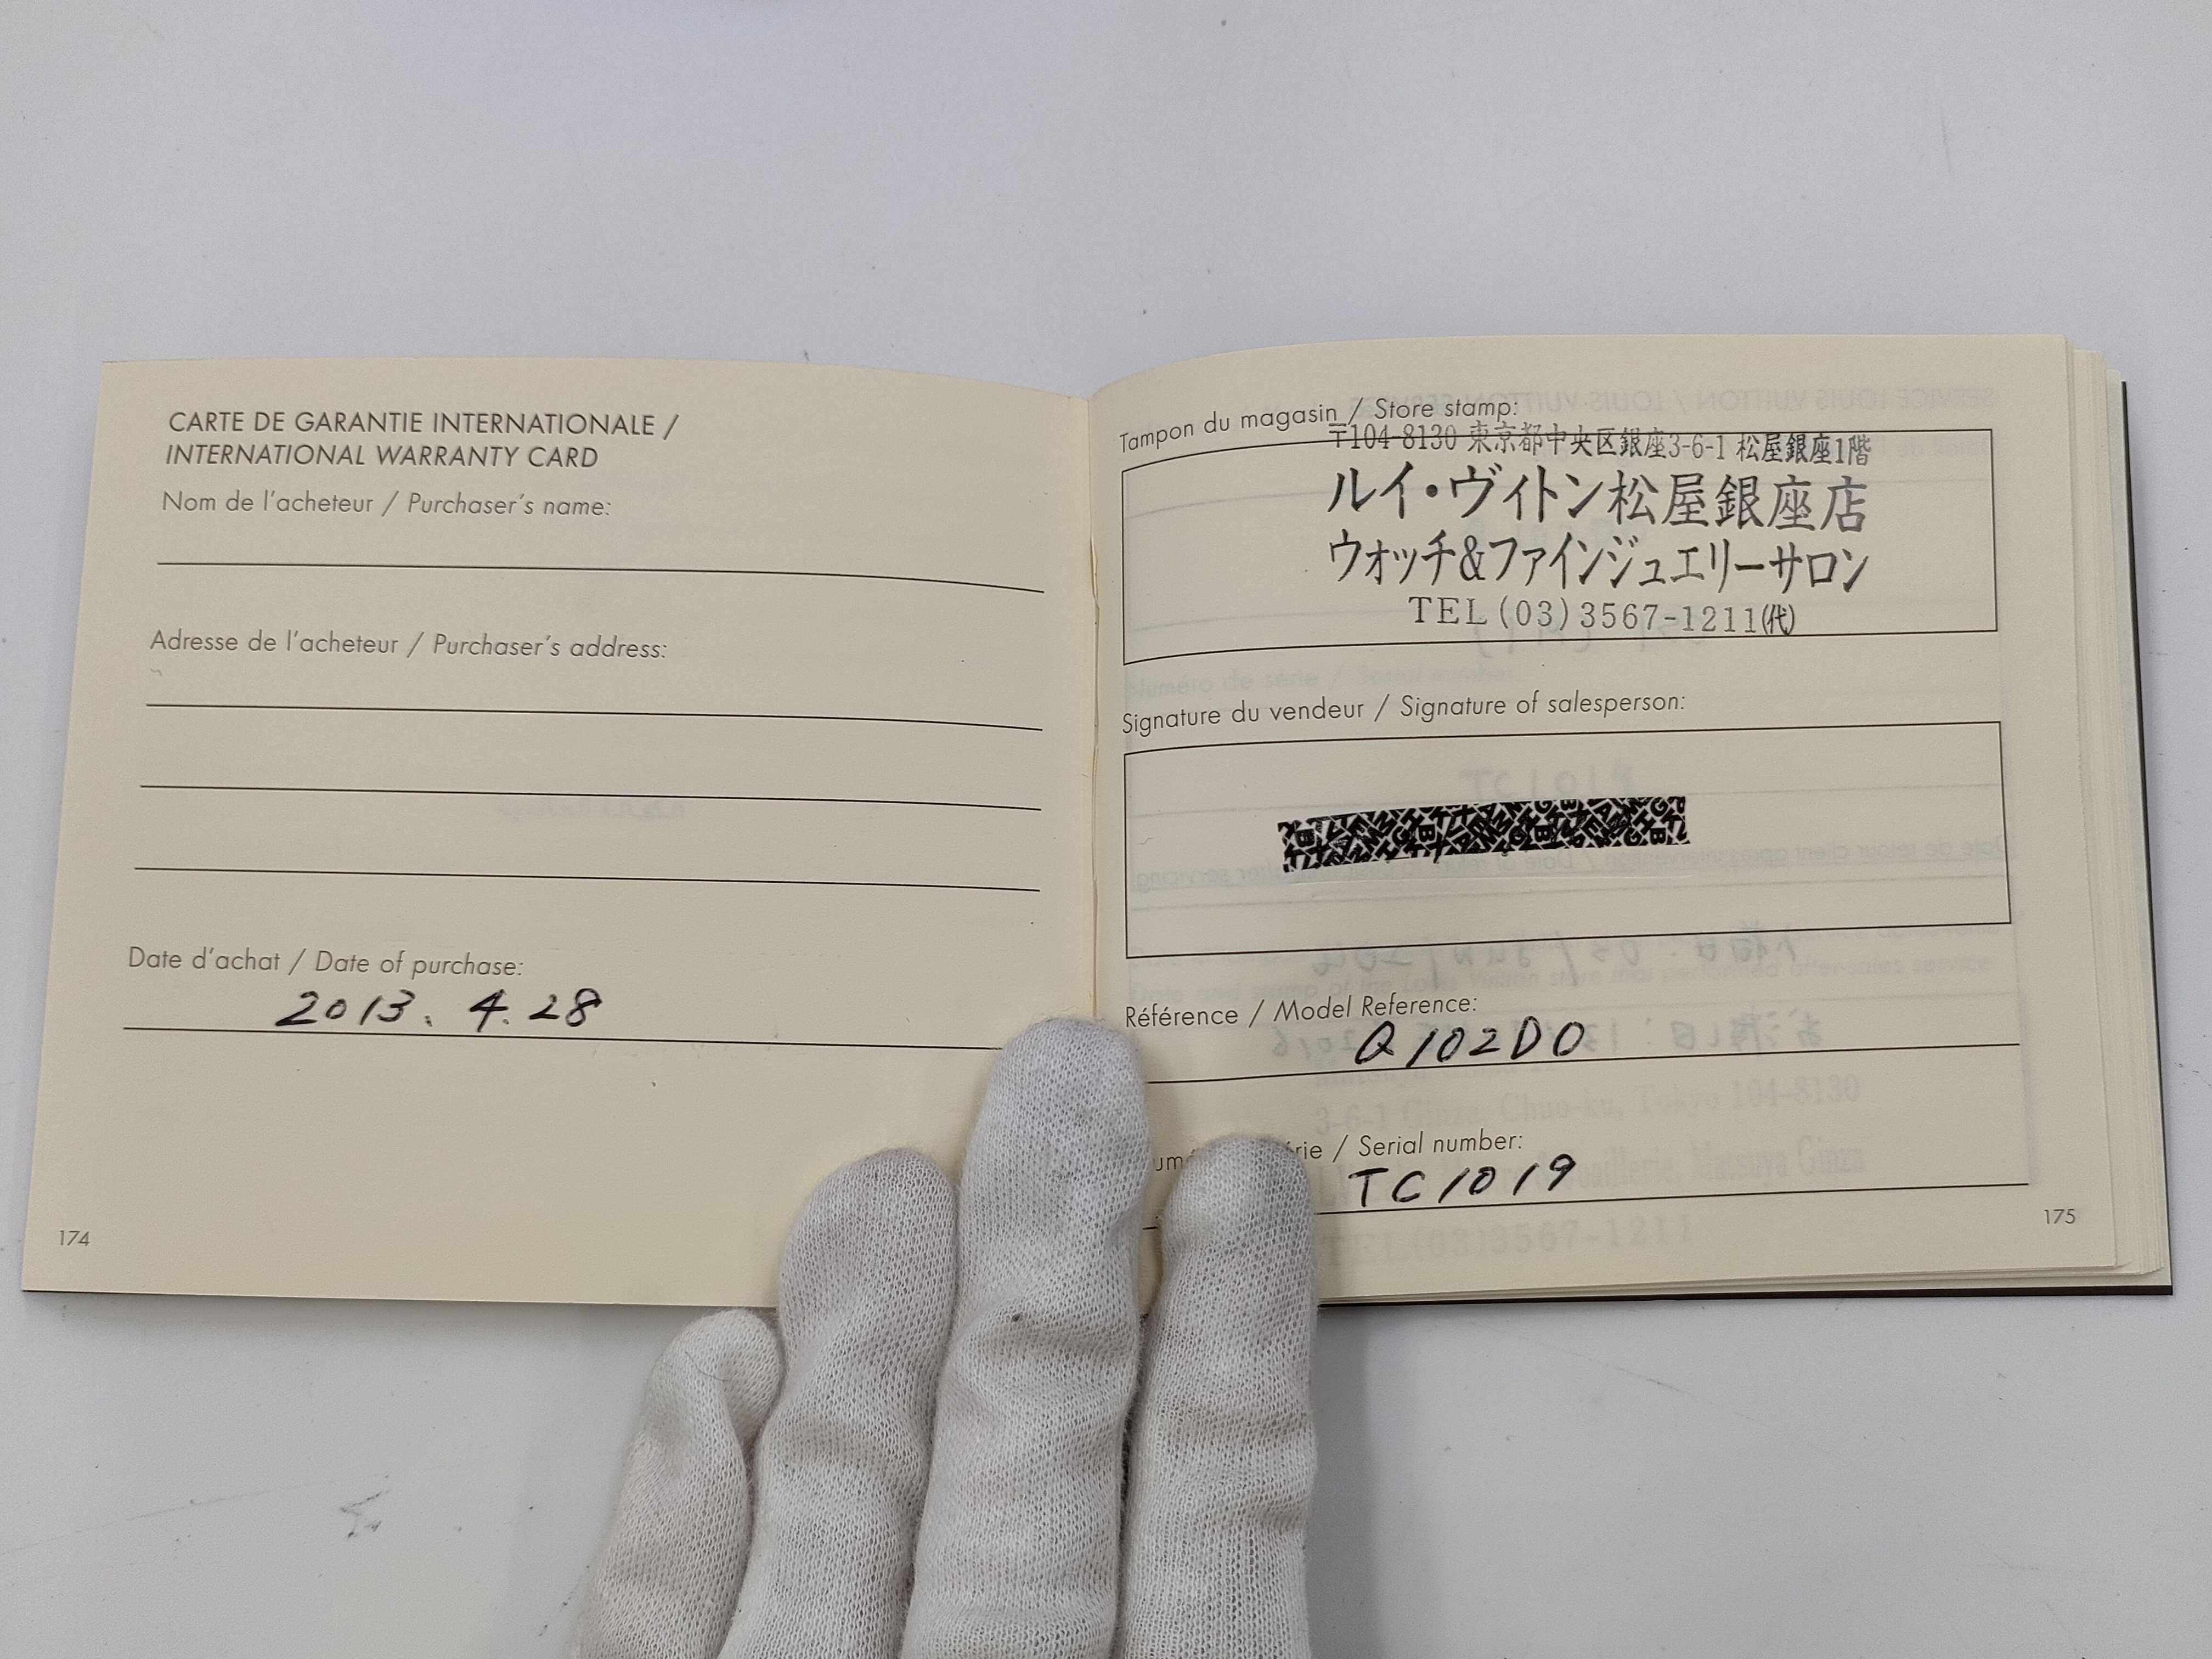 CARTE DE GARANTIE INTERNATIONALE /
INTERNATIONAL WARRANTY CARD
Nom de l'acheteur / Purchaser's name:
Adresse de l'acheteur / Purchaser's address:
Date d'achat / Date of purchase:
2013. 4. 28
174
Tampon du magasin / Store stamp:
〒104-8130 東京都中央区銀座3-6-1 松屋銀座1階
ルイ・ヴィトン松屋銀座店
ウォッチ&ファインジュエリーサロン
TEL(03)3567-1211(代)
Signature du vendeur / Signature of salesperson:
Référence / Model Reference:
Q102D0
/ Serial number:
TC1019
3-6-1 Ginza, Chuo-ku, Tokyo 104-8130
TEL(03)3567-1211
175